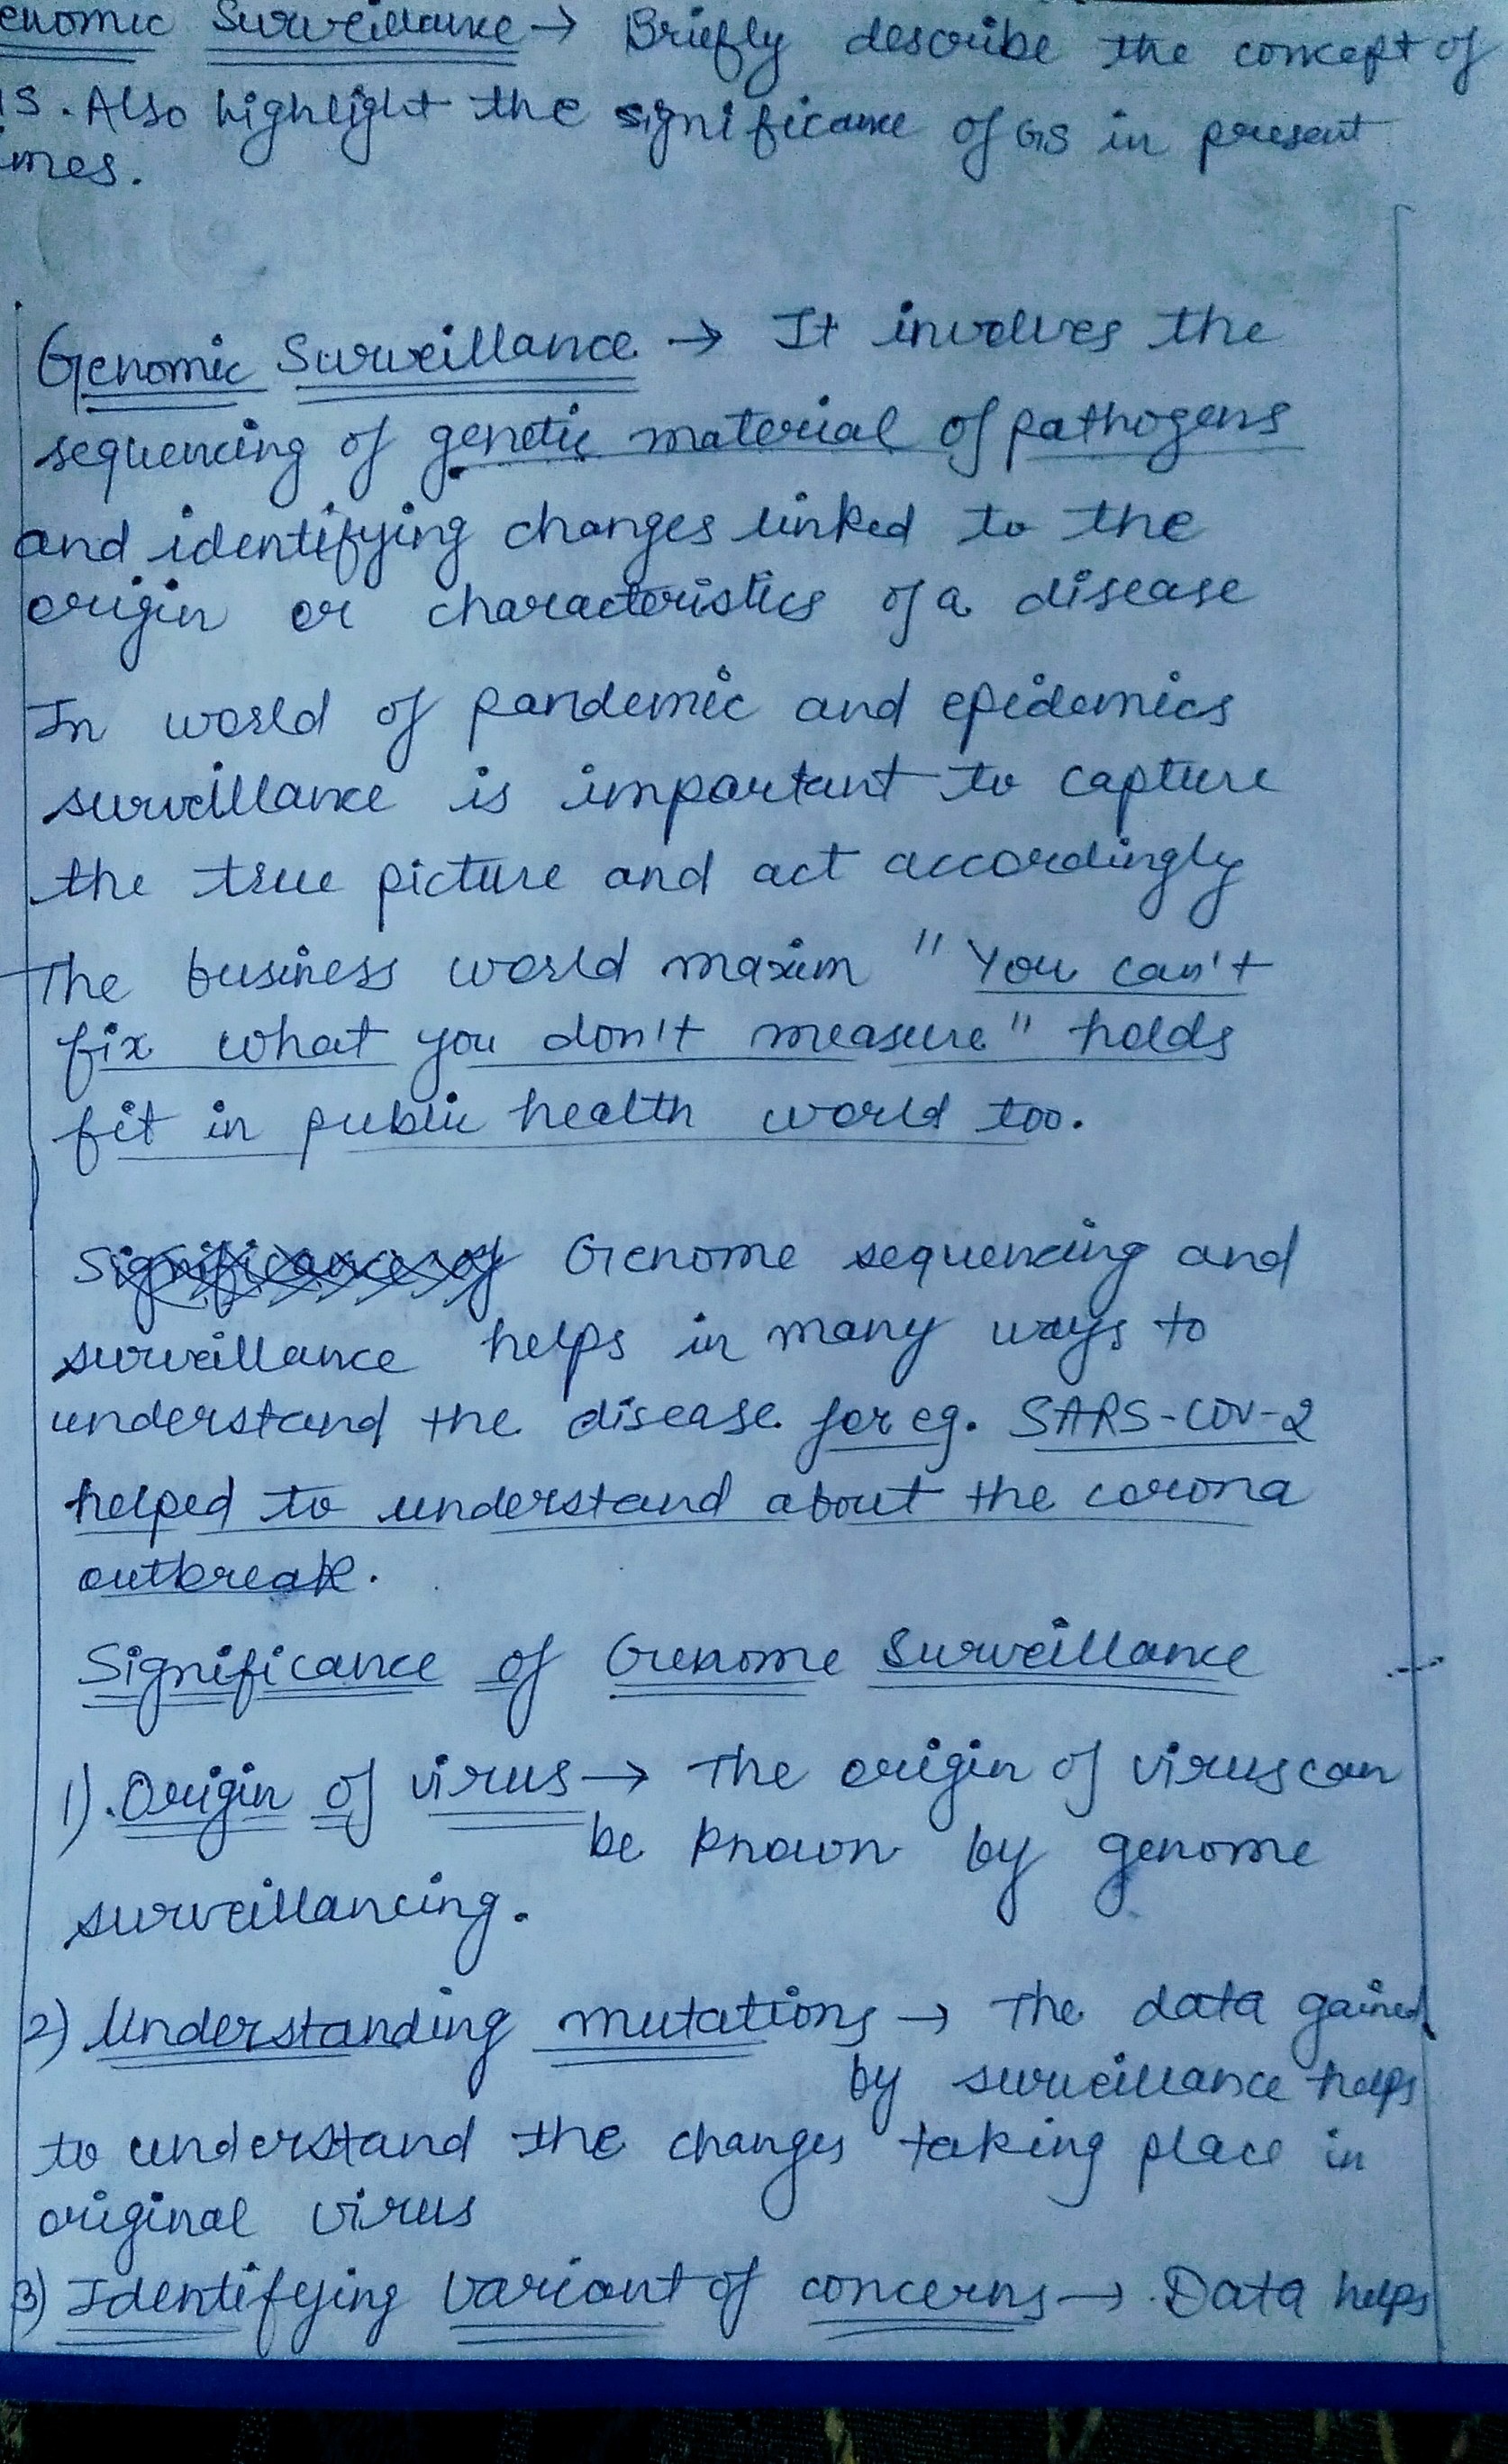 enomic Surveillance → Briefly describe the concept of
S. Also highlight the significance of GS in present
mes.
Genomic Surveillance → It involves the
sequencing of genetic material of pathogens
and identifying changes linked to the
origin or characteristics of a disease
In world of pandemic and epidemics
surveillance is important to capture
the true picture and act accordingly
The business world maxim "You can't
fix what you don't measure" holds
fit in public health world too.
Significance of Genome sequencing and
surveillance helps in many ways to
understand the disease for eg. SARS-COV-2
helped to understand about the corona
outbreak.
Significance of Genome Surveillance
1). Origin of virus → The origin of virus can
be known by genome
surveillancing.
2) Understanding mutations → The data gained
by surveillance helps
to understand the changes taking place in
original virus
3) Identifying variant of concerns → Data helps